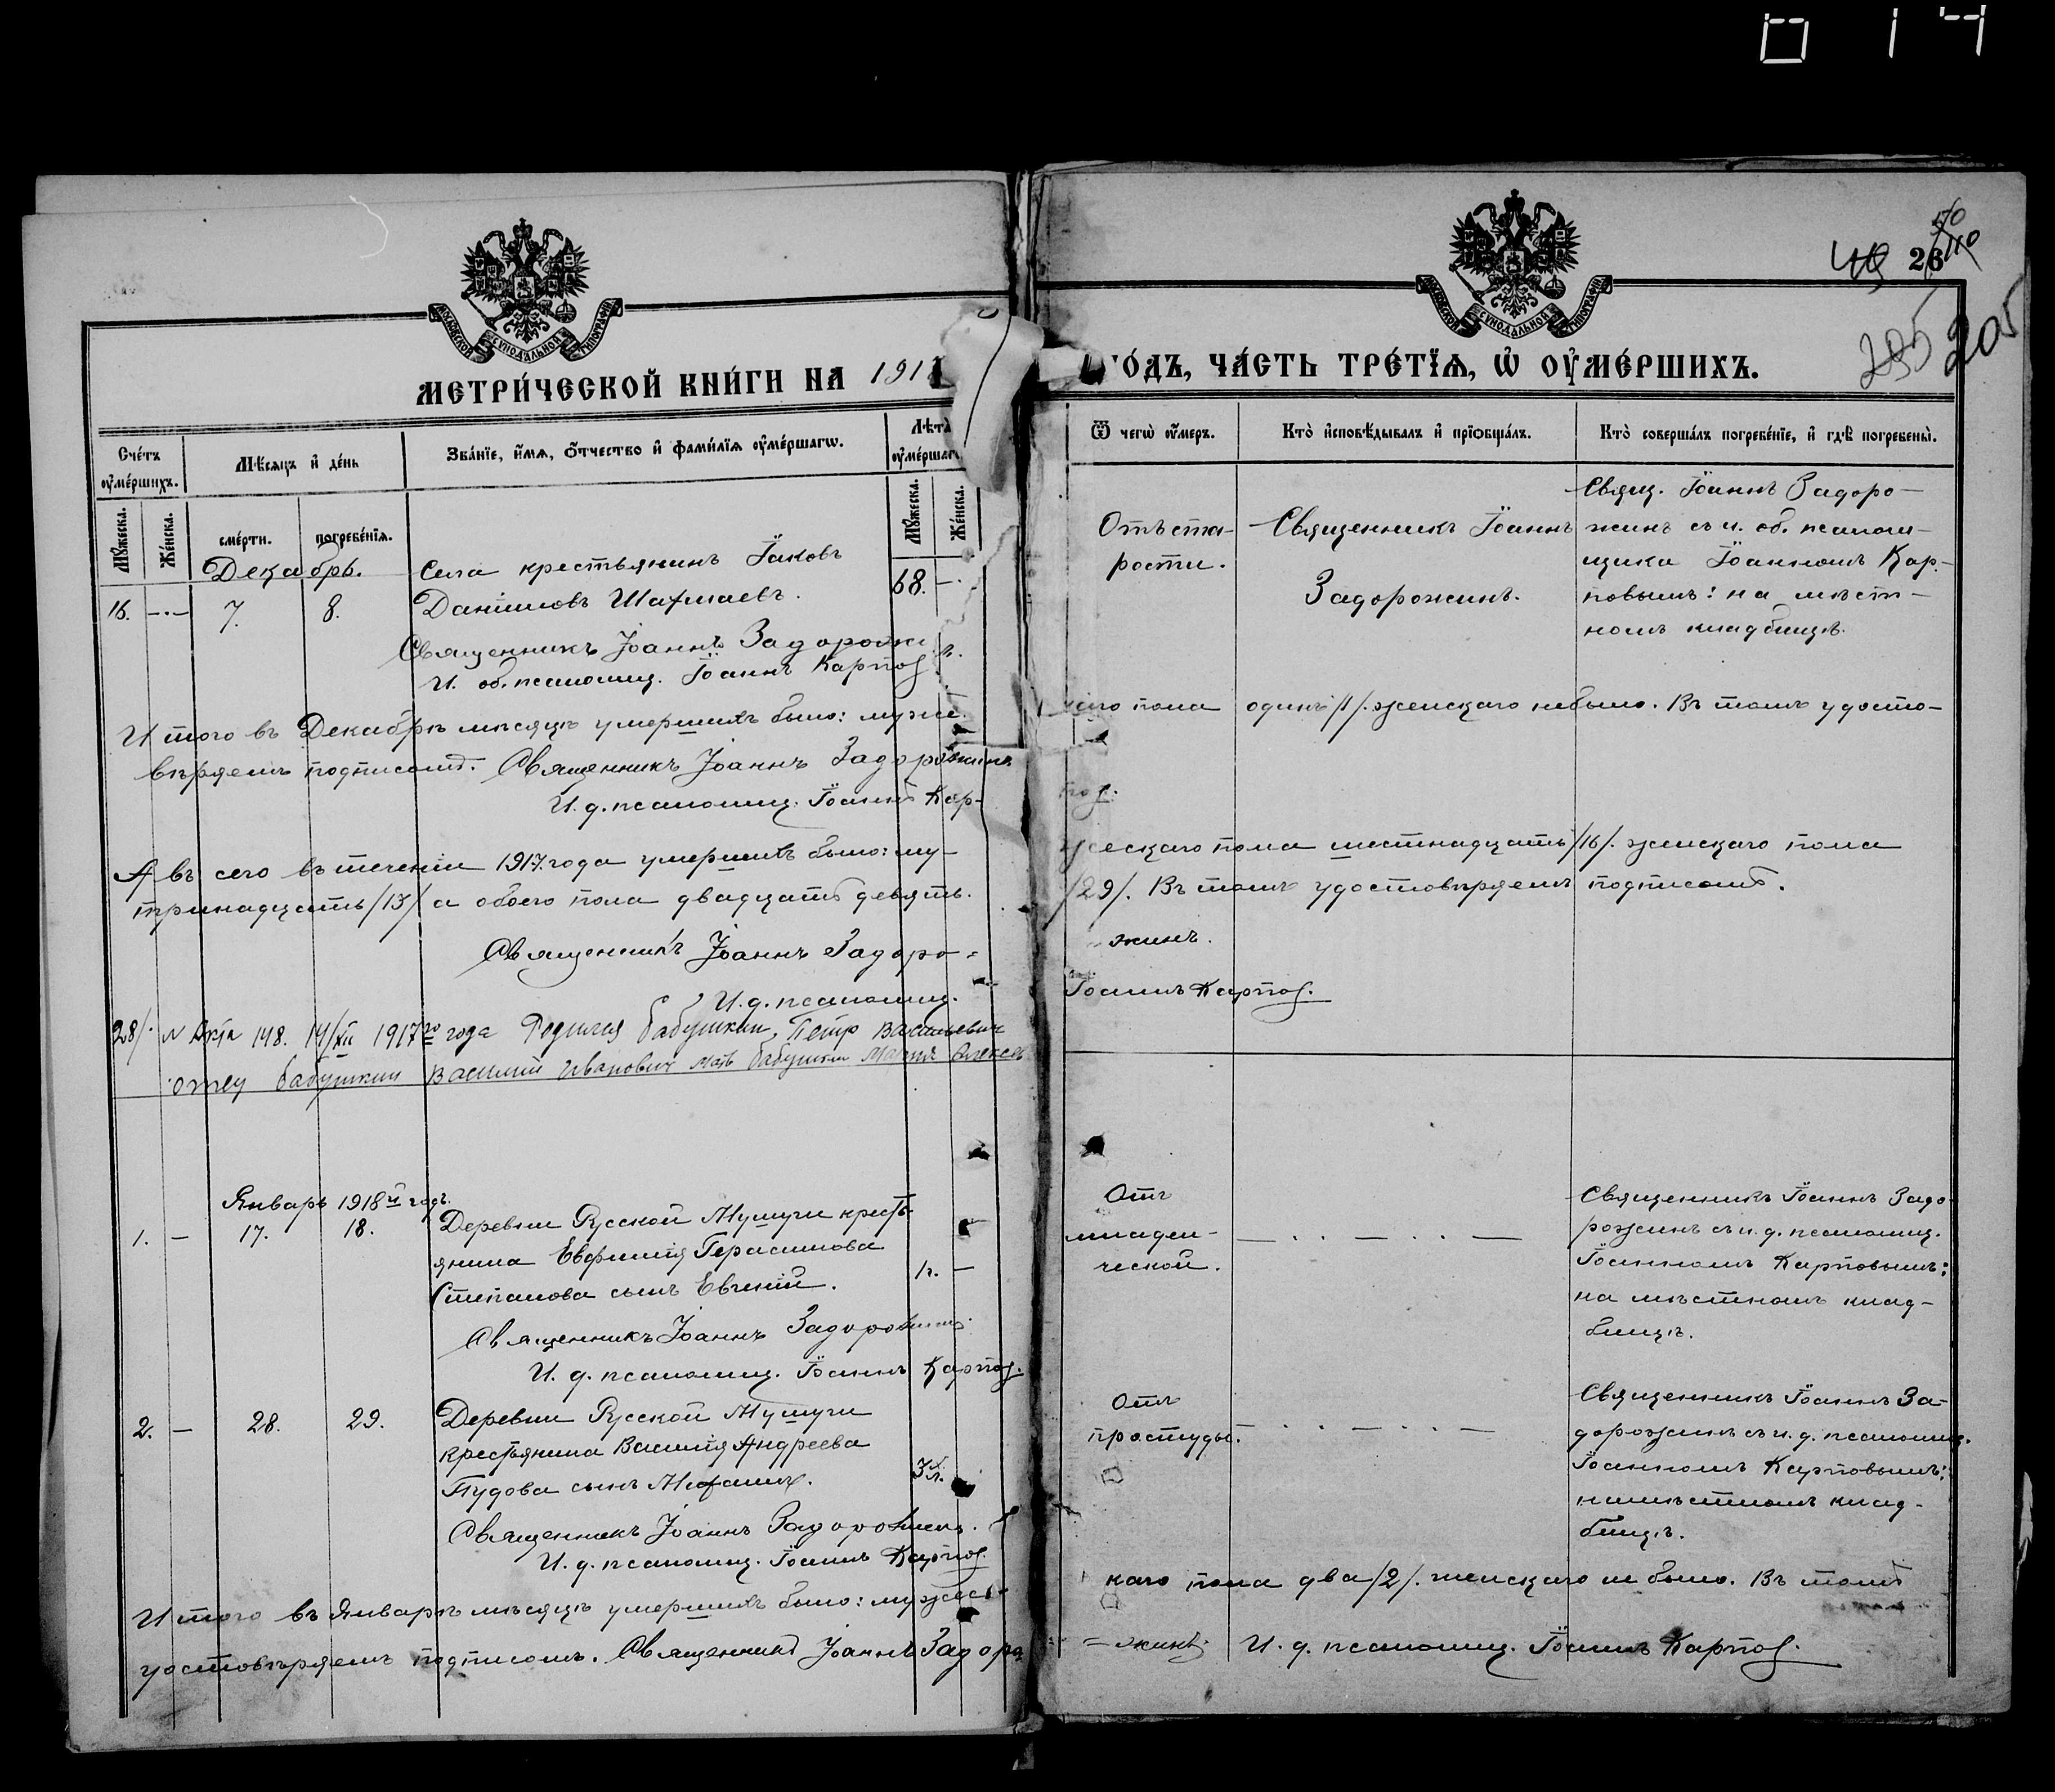 014
50
26
205 205
МОСКОВСКОЙ СУНОДАЛЬНОЙ ТИПОГРАФІИ
МОСКОВСКОЙ СУНОДАЛЬНОЙ ТИПОГРАФІИ
МЕТРИ́ЧЕСКОЙ КНИ́ГИ НА 191
ГО́ДЪ, ЧА́СТЬ ТРЕ́ТЇѦ, Ѡ҆ ОУ҆МЕ́РШИХЪ.
Сче́тъ оу҆ме́ршихъ.
Мѣ́сѧцъ и҆ де́нь
Зва́нїе, и҆́мѧ, ѻ҆́тчество и҆ фами́лїѧ оу҆ме́ршагѡ.
Лѣта̀ оу҆ме́ршаг
Ѿ чегѡ̀ оу҆́меръ.
Кто̀ и҆сповѣ́дывалъ и҆ прїѡбща́лъ.
Кто̀ соверша́лъ погребе́нїе, и҆ гдѣ̀ погребены̀.
Мꙋ́жеска.
Же́нска.
сме́рти.
погребе́нїя.
Мꙋ́жеска.
Же́нска.
Декабрь.
16. — 7. 8.
Села крестьянинъ Їаковъ
Даніиловъ Шатмаевъ.
68. —
Священникъ Іоаннъ Задорожинъ.
И. об. псаломщ. Їоаннъ Карпов
Отъ ста-
рости.
Священникъ Їоаннъ
Задорожинъ.
Свящ. Їоаннъ Задоро-
жинъ съ и. об. псалом-
щика Їоанномъ Кар-
повымъ: на мѣст-
номъ кладбищѣ.
Итого въ Декабрѣ мѣсяцѣ умершихъ было: муже
скаго пола одинъ /1/. женскаго небыло. Въ томъ удосто-
вѣряемъ подписомъ. Священникъ Іоаннъ Задорожинъ
И. д. псаломщ. Їоаннъ Кар-
пов.
А всего въ теченіи 1917. года умершихъ было: му-
жескаго пола шестнадцать /16/. женскаго пола
тринадцать /13/ а обоего пола двадцать девять.
/29/. Въ томъ удостовѣряемъ подписомъ.
Священникъ Іоаннъ Задоро=
жинъ.
И. д. псаломщ.
Їоаннъ Карпов.
28/. N Акта 148. 14/XII 1917го года Родился Бабушкин, Петр Васильевич
отец бабушкин Василий Иванович мать бабушкин Мария Алексе
Январь 1918й годъ.
1. — 17. 18.
Деревни Русской Мушуги кресть-
янина Евфимія Герасимова
Степанова сынъ Евгеній.
1г. —
Священникъ Іоаннъ Задорожинъ.
И. д. псаломщ. Їоаннъ Карпов.
Отъ
младен-
ческой.
Священникъ Їоаннъ Задо-
рожинъ съ и. д. псаломщ.
Їоанномъ Карповымъ:
на мѣстномъ клад-
бищѣ.
2. — 28. 29.
Деревни Русской Мушуги
крестьянина Василія Андреева
Пудова сынъ
3х л.
Священникъ Іоаннъ Задорожинъ.
И. д. псаломщ. Їоаннъ Карпов.
Отъ
простуды.
Священникъ Їоаннъ За-
дорожинъ съ и. д. псаломщ.
Їоанномъ Карповымъ:
на мѣстномъ клад-
бищѣ.
Итого въ Январѣ мѣсяцѣ умершихъ было: мужес-
каго пола два /2/. женскаго не было. Въ томъ
удостовѣряемъ подписомъ. Священникъ Іоаннъ Задоро
=жинъ. И. д. псаломщ. Їоаннъ Карпов.